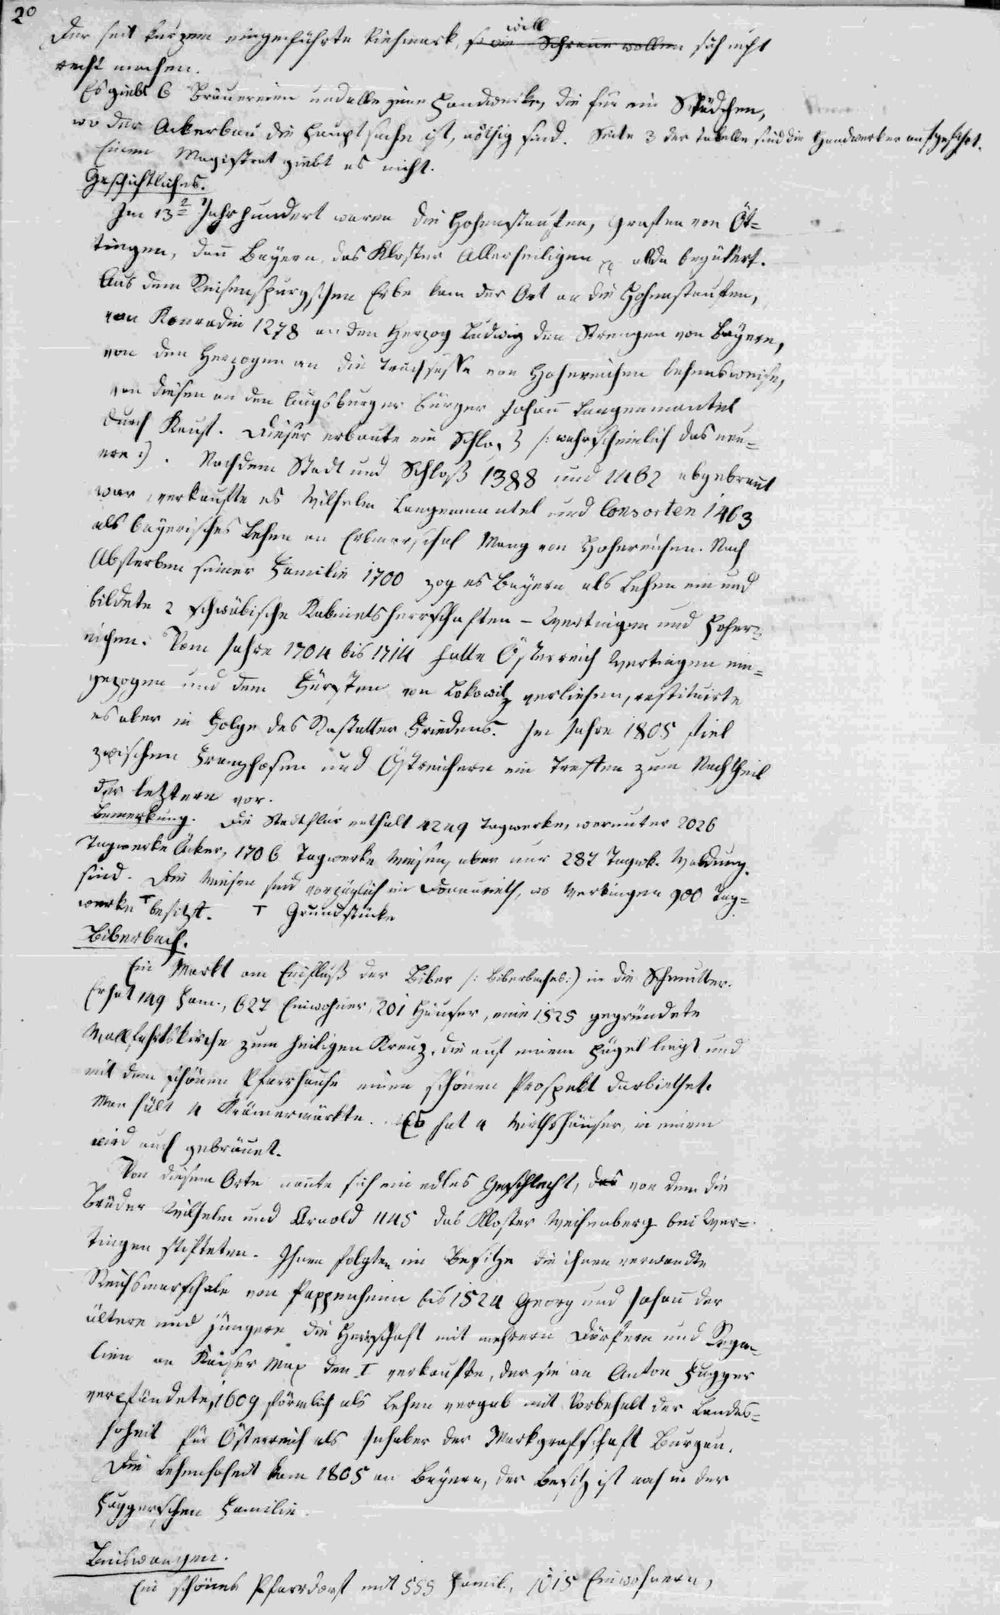 20
Der seit kurzem eingeführte Viehmark, so wie Schranne wollen will sich nicht
recht machen.
Es giebt 6 Bräuereien und alle jene Handwerke, die für ein Städchen,
wo der Ackerbau die Hauptsache ist, nöthig sind. Seite 3 der Tabelle sind die Handwerker aufgeführt.
Einen Magistrat giebt es nicht.
Geschichtliches.
Im 13ten Jahrhundert waren die Hohenstaufen, Grafen von Öt-
tingen, dann Bayern, das Kloster Allerheiligen alda begütert.
Aus dem Reisenspurgschen Erbe kam der Ort an die Hohenstaufen,
von Konradin 1278 an den Herzog Ludwig den Strengen von Bayern,
von den Herzogen an die Truchsesse von Hohenreichen lehensweise,
von diesen an den Augsburger Bürger Johann Langenmantel
durch Kauf. Dieser erbaute ein Schloß /: wahrscheinlich das neu-
ere :/. Nachdem Stadt und Schloß 1388 und 1462 abgebrant
war, verkaufte es Wilhelm Langenmantel und Consorten 1463
als bayerisches Lehen an Erbmarschal Mang von Hohenreichen. Nach
Absterben seiner Familie 1700 zog es Bayern als Lehen ein und
bildete 2 schwäbische Kabinetsherrschaften – Wertingen und Hohen-
reichen. Vom Jahre 1704 bis 1714 hatte Österreich Wertingen ein-
gezogen und dem Fürsten von Lobowitz verliehen, restituirte
es aber in Folge des Rastatter Friedens. Im Jahre 1805 fiel
zwischen Franzhosen und Östreichern ein Treffen zum Nachtheil
der letztern vor.
Bemerkung. Die Stadtflur enthält 4249 Tagwerke, worunter 2026
Tagwerke Äcker, 1706 Tagwerke Wiesen, aber nur 287 Tagwk. Waldung
sind. Die Wiesen sind vorzüglich im Donauriéth, wo Wertingen 900 Tag-
werke T besitzt. T Grundstücke
Biberbach.
Ein Markt am Einfluß der Biber /: Biberbaches :/ in die Schmutter.
Er hat 149 Fam., 627 Einwohner, 201 Häuser, eine 1525 gegründete
Wallfahrtskirche zum heiligen Kreuz, die auf einem Hügel liegt und
mit dem schönen Pfarrhause einen schönen Prospekt darbiethet.
Man hält 4 Krämermärkte. Es hat 4 Wirthshäuser, in einem
wird auch gebräuet.
Von diesem Orte nannte sich ein edles Geschlecht, das von dem die
Brüder Wilhelm und Arnold 1145 das Kloster Weihenberg bei Wer-
tingen stifteten. Ihnen folgten im Besitze die ihnen verwandte
Reichsmarschale von Pappenheim bis 1524 Georg und Johann der
ältere und jüngere die Herrschaft mit mehrern Dörfern und Rega-
lien an Kaiser Max den I verkaufte, der sie an Anton Fugger
verpfändete, 1609 förmlich als Lehen vergab mit Vorbehalt der Landes-
hoheit für Österreich als Inhaber der Markgrafschaft Burgau.
Die Lehenhoheit kam 1805 an Bayern, der Besitz ist noch in der
Fuggerschen Familie.
Binswangen.
Ein schönes Pfarrdorf mit 559 Famil., 1015 Einwohnern,